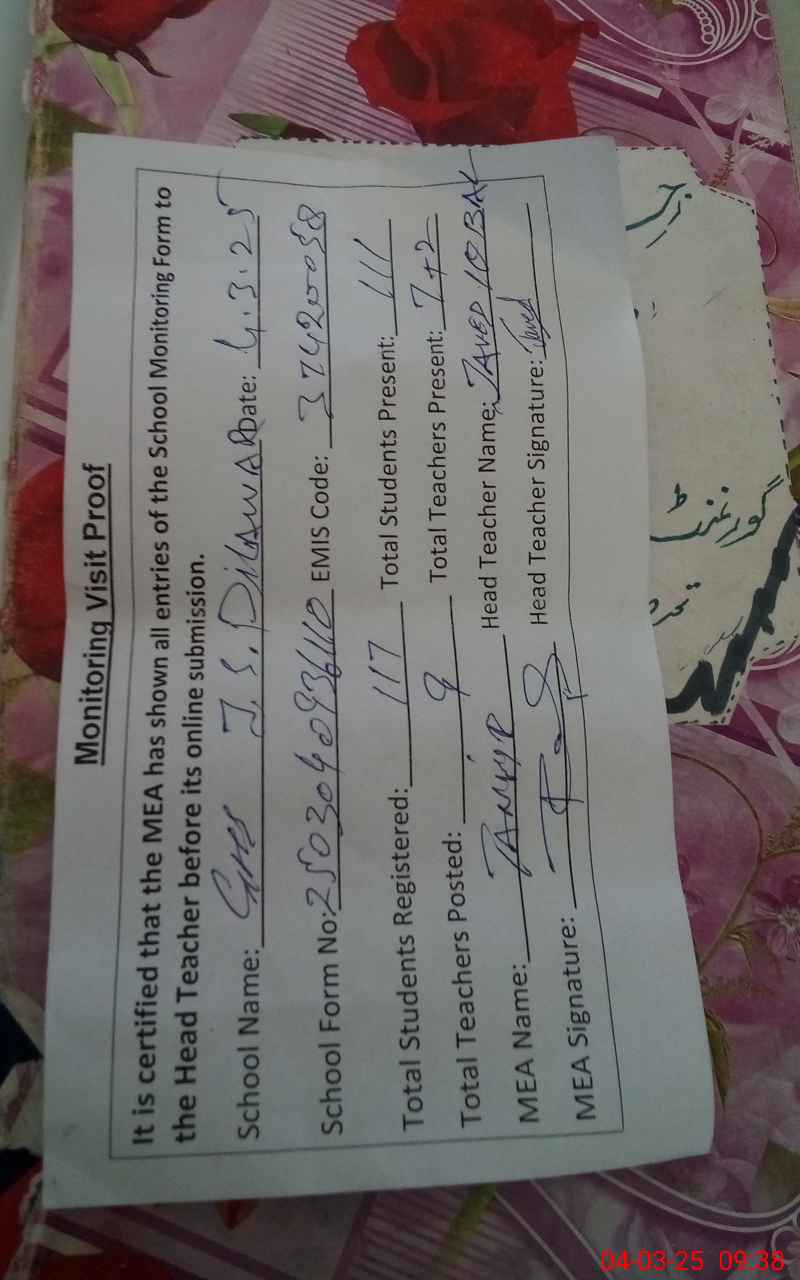 Monitoring Visit Proof
It is certified that the MEA has shown all entries of the School Monitoring Form to
the Head Teacher before its online submission.
School Name: GMS J.S. DILAWAR Date: 4.3.25
School Form No: EMIS Code: 37420058
Total Students Registered: 117 Total Students Present: 111
Total Teachers Posted: 9 Total Teachers Present: 7+2
MEA Name: TANVIR Head Teacher Name: JAVED IQBAL
MEA Signature: Head Teacher Signature: Javed
گورنمنٹ
04-03-25 09:38